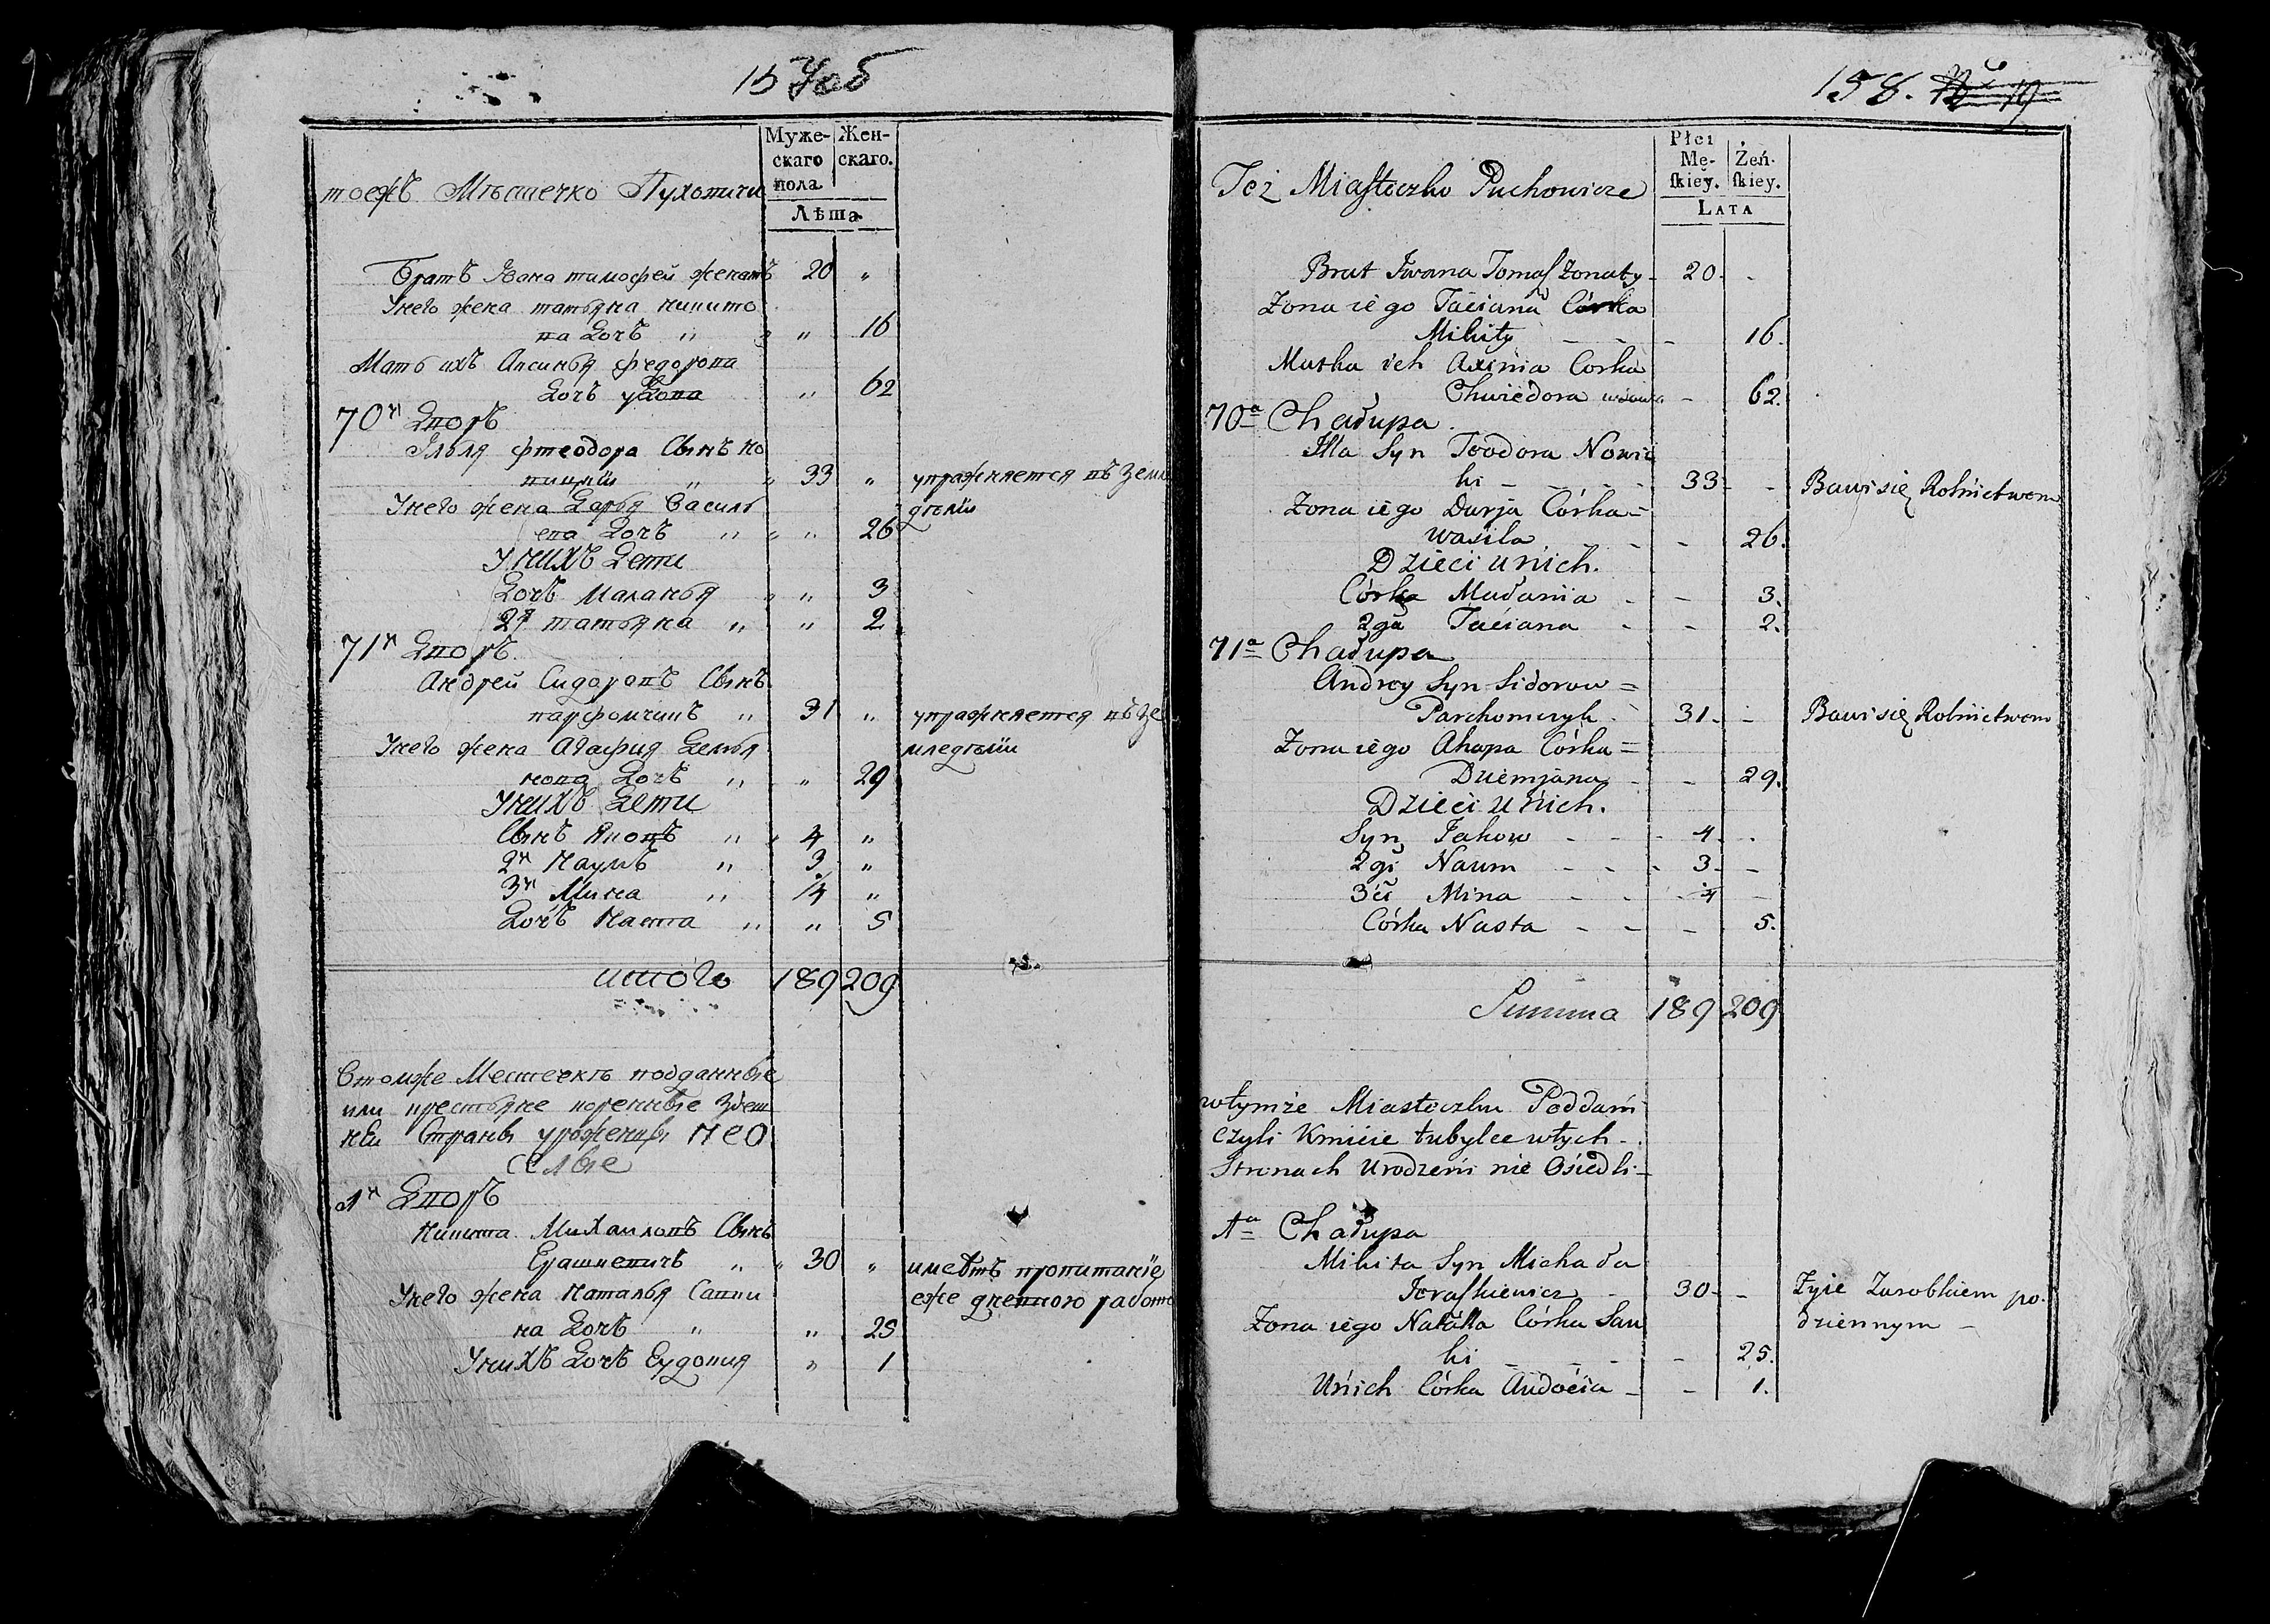 157об
Муже-
скаго
пола
Жен-
скаго.
Лѣта
тожъ Мѣстечко Пуховичи
Братъ Ивана тимофей женатъ 20 "
Унего жена татьяна никито
ва Дочь " " " 16
Мать ихъ Аксинья федорова
Дочь удова " 62
70й Дворъ
Илья фтеодора Сынъ но
вицкiй " " 33 " упражняется въ Земл
Унего жена Дарья Василь
дѣлiи
ева Дочь " " " 26
Унихъ Дети
Дочь Маланья " " 3
2я татьяна " " 2
71й Дворъ
Андрей Сидоровъ Сынъ
парфомчикъ " 31 " упражняется въ Зе
Унего жена Агафия Демья
мледѣлiи
нова Дочь " " 29
Унихъ Дети
Сынъ Яковъ " " 4 "
2й Наумъ " 3 "
3й Мина " 1/4 "
Дочь Наста " " 5
итого 189 209
Втомже Местечкѣ подданные
или крестьяне коренные Здеш
ней Страны уроженцы нео
селые
1й Дворъ
Никита Михаиловъ Сынъ
Ерашкевичъ " " 30 " имеетъ пропитанiе
Унего жена Наталья Савки
еже дневною работо
на Дочь " " 25
Унихъ Дочь Еудокия " 1
158.
Płci
Mę-
ſkiey.
Żeń-
ſkiey.
LATA
Też Miaſteczko Puchowicze
Brat Iwana Tomaſz żonaty - 20 - -
Żona iego Taciana Córka
Mikity - - - 16.
Matka ich Axinia Corka
Chwiedora wdowa - 62.
70a Chałupa
Illa Syn Teodora Nowic
ki - - - - 33 - - Bawi się Rolnictwem
Żona iego Darja Córka =
Wasila - - - 26.
Dzieci u nich.
Córka Małania - - 3.
2ga Taciana - - 2.
71a Chałupa
Andrey Syn Sidorow =
Parchomczyk - 31 - - Bawi się Rolnictwem
Żona iego Ahapa Córka =
Dziemjana - - 29.
Dzieci u nich.
Syn Jakow - - - 4 - .
2gi Naum - - - 3 - -
3ci Mina - - - 1/4 -
Córka Nasta - - - 5.
Summa 189 209
w tymże Miasteczku Poddani
czyli Kmiecie tubylce w tych -
Stronach Urodzeni nie Osiedli -
1a Chałupa
Mikita Syn Michała
Jeraſzkiewicz - 30 - - Żyie Zarobkiem po-
dziennym -
Żona iego Natalla Córka Saw
ki - - - - 25.
U nich Córka Audocia - - 1.